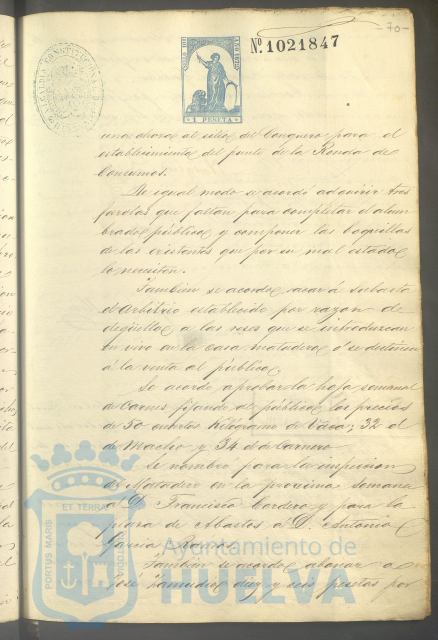 -70-
ALCALDIA CONSTITUCIONAL
HUELVA
SELLO 11º AÑO 1870
1 PESETA
Nº 1021847
una choza al sitio del Conquero para el
establecimiento del punto de la Ronda de
Consumos.
De igual modo se acordó adquirir tres
farolas que faltan para completar el alum
brado público y componer las boquillas
de las existentes que por su mal estado
lo necesiten.
Tambien se acordó sacar á subasta
el Arbitrio establecido por razon de
degüello a las reses que se introduzcan
en vivo en la casa matadero ó se destinen
á la venta al público.
Se acordó aprobar la hoja semanal
de Carnes fijando al público los precios
de 50 cuartos Kilógramo de Vaca; 32 el
de Macho y 34 el de Carnero.
Se nombró para la inspeccion
de Matadero en la proxima Semana
a D. Francisco Cordero y para la
plaza de Abastos a D. Antonio
Garcia
Tambien se acordó abonar a
José Zamudio diez y seis pesetas por
PORTUS MARIS ET TERRAE CUSTODIA
Ayuntamiento de
HUELVA